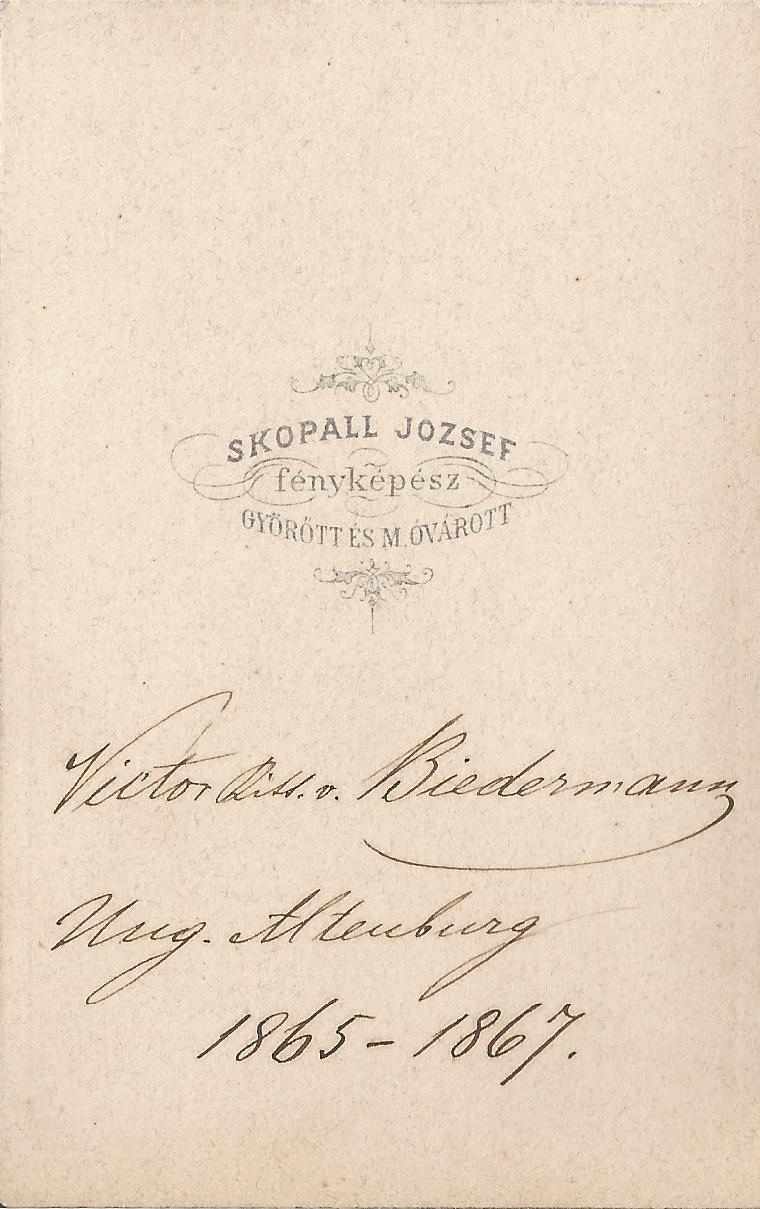 SKOPALL JOZSEF
fényképész
GYÖRÖTT ÉS M. ÓVÁROTT
Victor Ritt. v. Biedermann
Ung. Altenburg
1865 – 1867.